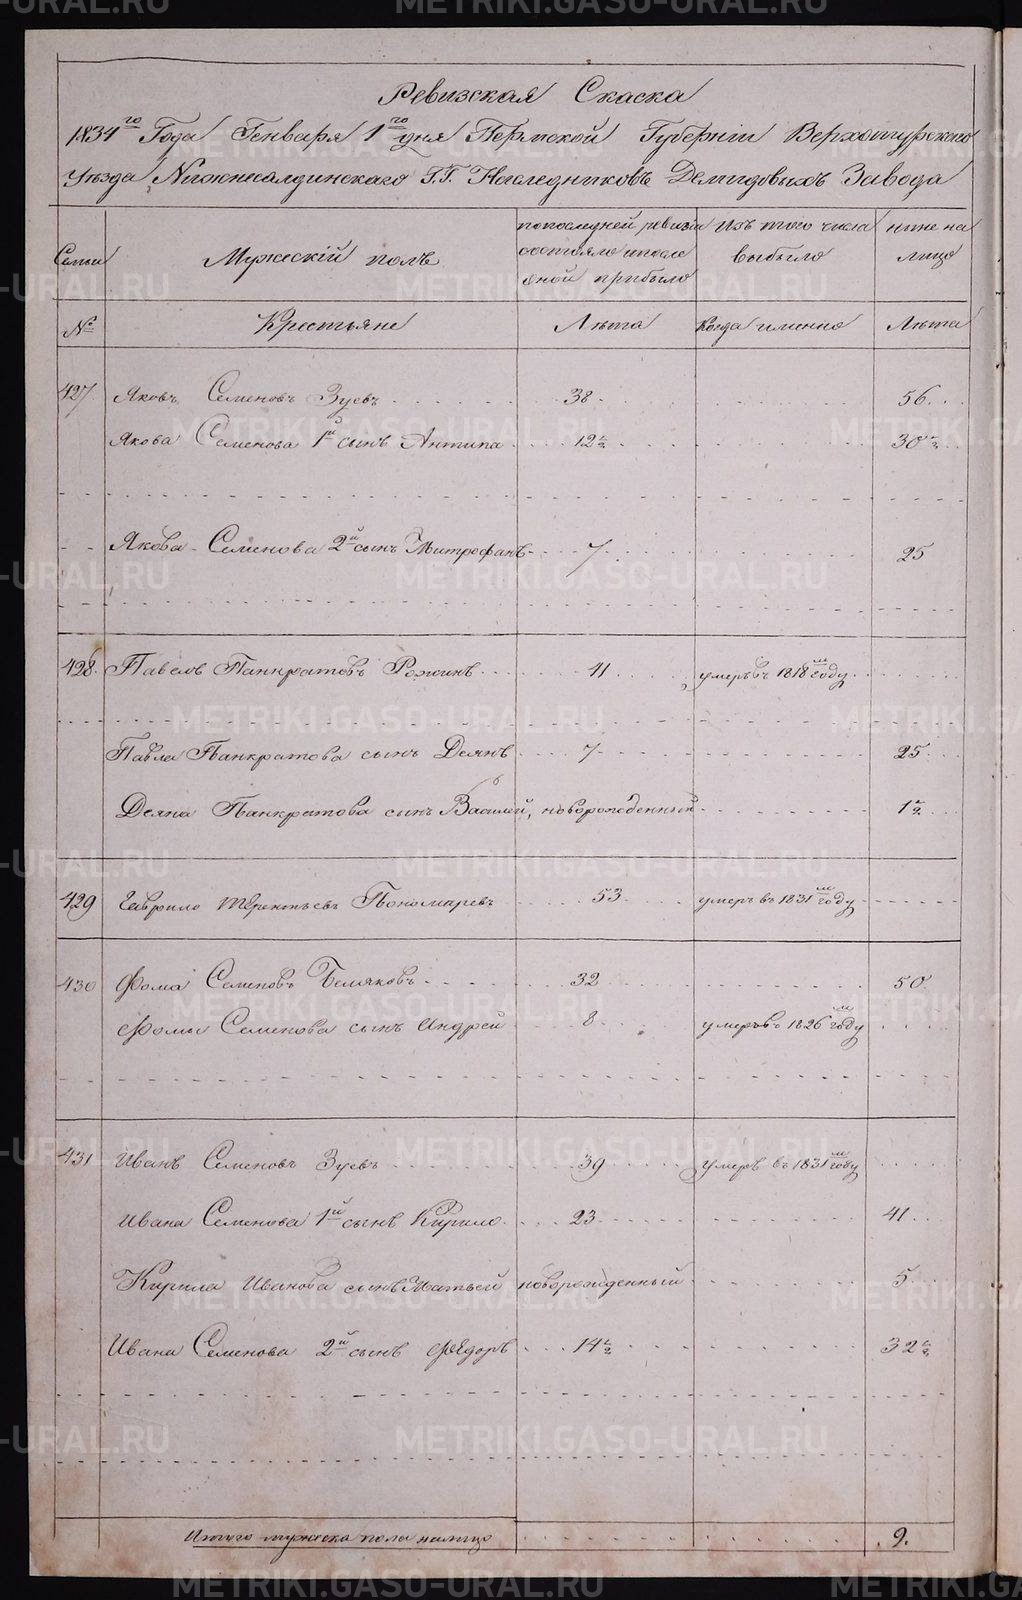 Ревизская Скаска
1834го Года Генваря 1го дня Пермской Губерніи Верхотурскаго
Уѣзда Нижнесалдинскаго Г.Г. Наследниковъ Демидовыхъ Завода
Семьи
Мужескій полъ
по последней ревизіи состояло и после оной прибыло
Изъ того числа выбыло
ныне на лицо
№
Крестьяне
Лѣта
когда именно
Лѣта
427 Яковъ Семеновъ Зуевъ 38 56
Якова Семенова 1й сынъ Антипа 12 1/2 30 1/2
Якова Семенова 2й сынъ Митрофанъ 7 25
428. Павелъ Панкратовъ Рожинъ 41 умеръ въ 1818м году
Павла Панкратова сынъ Деянъ 7 25
Деяна Панкратова сынъ Василей, новорожденный 1 1/2
429 Гаврило Терентьевъ Пономаревъ 53 умеръ въ 1831м году
430 Фома Семеновъ Беляковъ 32 50
Фомы Семенова сынъ Андрей 8 умеръ въ 1826м году
431 Иванъ Семеновъ Зуевъ 39 умеръ въ 1831м году
Ивана Семенова 1й сынъ Кирило 23 41
Кирила Иванова сынъ Матвей новорожденный 5
Ивана Семенова 2й сынъ Федоръ 14 1/2 32 1/2
Итого мужеска пола налицо 9.
METRIKI.GASO-URAL.RU